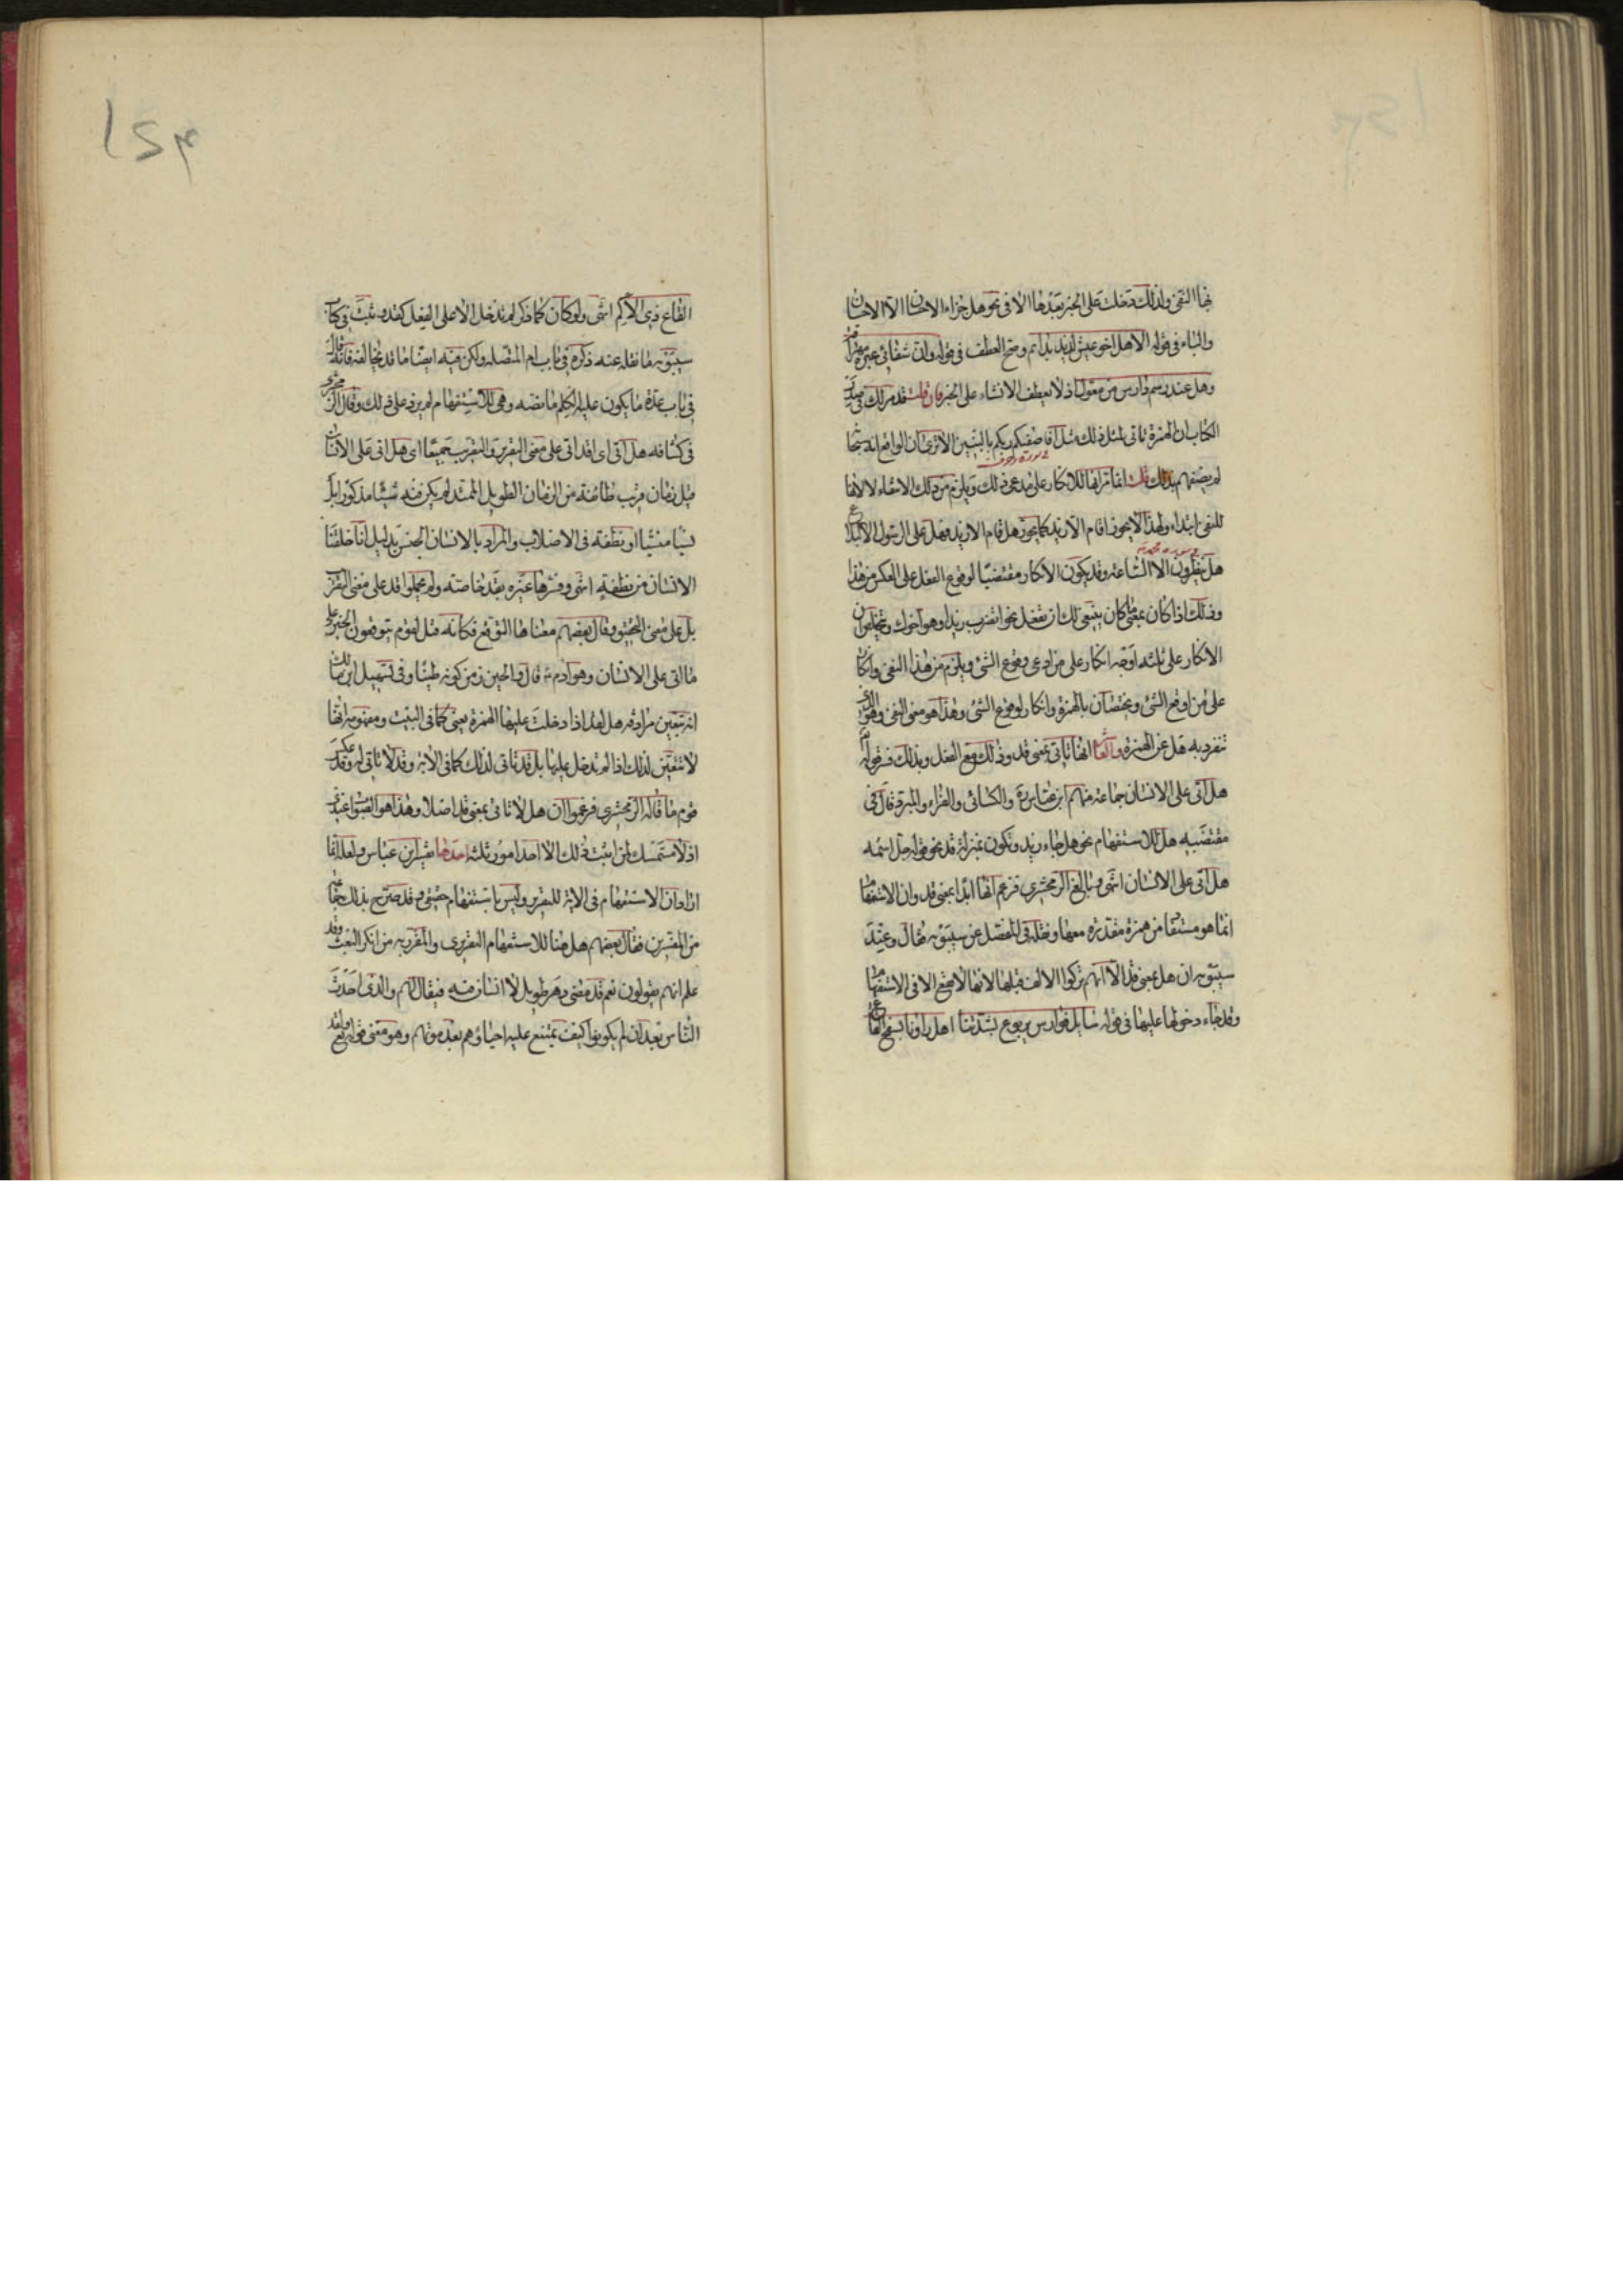 بها النفى ولذلك دخلت على الخبر بعدها الا فى نحو هل جزاء الاحسان الا الاحسان
والباء فى قوله الا هل اخو عيش لذيذ بدائم وصح العطف فى قوله وان شفائى عبرة مهراقة
وهل عند رسم دارس من معول اذ لا يعطف الانشاء على الخبر فان قلت قد مر لك فى صدر
الكتاب ان الهمزة تاتى لمثل ذلك مثل افاصفيكم ربكم بالبنين الا ترى ان الواقع انه سبحانه
لم يصفهم بذلك قلت انما مر انها للانكار على مدعى ذلك ويلزم من ذلك الانتفاء لا لانها
للنفى ابتداء ولهذا لا يجوز اقام الا زيد كما يجوز هل قام الا زيد وهل على الرسول الا البلاغ
هل ينظرون الا الساعة وقد يكون الانكار مقتضيا لوقوع الفعل على العكس من هذا
وذلك اذا كان بمعنى ما كان ينبغى لك ان تفعل نحو اتضرب زيدا وهو اخوك ويتخلص ان
الانكار على ثلثه اوجه انكار على من ادعى وقوع الشئ ويلزم من هذا النفى وانكار
على من اوقع الشئ ويختصان بالهمزة وانكار لوقوع الشئ وهذا هو معنى النفى وهو الذى
تنفرد به هل عن الهمزة والعاشر انها تاتى بمعنى قد وذلك مع الفعل وبذلك فسر قوله تعالى
هل اتى على الانسان جماعة منهم ابن عباس رض والكسائى والفراء والمبرد قال فى
مقتضبه هل للاستفهام نحو هل جاء زيد وتكون بمنزلة قد نحو قوله جل اسمه
هل اتى على الانسان انتهى وبالغ الزمخشرى فزعم انها ابدا بمعنى قد وان الاستفهام
انما هو مستفاد من همزة مقدرة معها ونقله فى المفصل عن سيبويه فقال وعند
سيبويه ان هل بمعنى قد الا انهم تركوا الالف قبلها لانها لا تقع الا فى الاستفهام
وقد جاء دخولها عليها فى قوله سايل فوارس يربوع بشدتنا اهل راونا بسفح القاع
القاع ذى الاكم انتهى ولو كان كما ذكر لم تدخل الا على الفعل كقد و ثبت فى كتاب
سيبويه ما نقله عنه ذكره فى باب ام المتصله ولكن فيه ايضا ما قد يخالفه فانه قال
فى باب عدة ما يكون عليه الكلم ما نصه وهى للاستفهام لم يزد على ذلك وقال الزمخشرى
فى كشافه هل اتى اى اقد اتى على معنى التقرير والتقريب جميعا اى هل اتى على الانسان
قبل زمان قريب طائفة من الزمان الطويل الممتد لم يكن فيه شيئا مذكورا بل
شيئا منسيا او نطفة فى الاصلاب والمراد بالانسان الجنس بدليل انا خلقنا
الانسان من نطفة انتهى وفسرها غيره بقد خاصة ولم يحملوا قد على معنى التقريب
بل على معنى التحقيق وقال بعضهم معناها التوقع فكانه قيل لقوم يتوقعون الخبر على
ما اتى على الانسان وهو ادم ع قال والحين زمن كونه طينا وفى تسهيل ابن مالك
انه تتعين مرادفه هل لقد اذا دخلت عليها الهمزة يعنى كما فى البيت ومفهومه انها
لا تتعين لذلك اذا لم تدخل عليها بل قد تاتى لذلك كما فى الاية وقد لا تاتى له وقد عكس
قوم ما قاله الزمخشرى فزعموا ان هل لا تاتى بمعنى قد اصلا وهذا هو الصواب عندى
اذ لا متمسك لمن اثبت ذلك الا احد امور ثلثه احدها تفسير ابن عباس ولعله انما
اراد ان الاستفهام فى الاية للتقرير وليس باستفهام حقيقى وقد صرح بذلك جماعة
من المفسرين فقال بعضهم هل هنا للاستفهام التقريرى والمقرر به من انكر البعث وقد
علم انهم يقولون نعم قد مضى دهر طويل لا انسان فيه فيقال لهم والذى احدث
الناس بعد ان لم يكونوا كيف يمتنع عليه احياؤهم بعد موتهم وهو معنى قوله تع ولقد